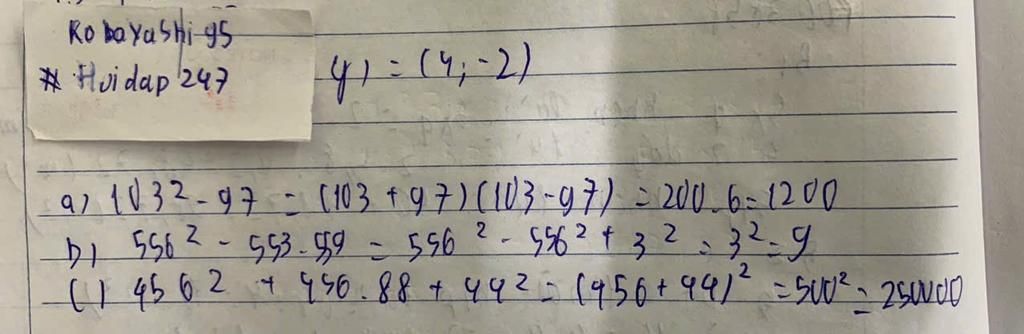 Kobayashi95
# Hoidap247
y) = (4; -2)
a) 103² - 97 = (103 + 97)(103 - 97) = 200.6 = 1200
b) 556² - 553.559 = 556² - 556² + 3² = 3² = 9
c) 456² + 456.88 + 44² = (456 + 44)² = 500² = 250000